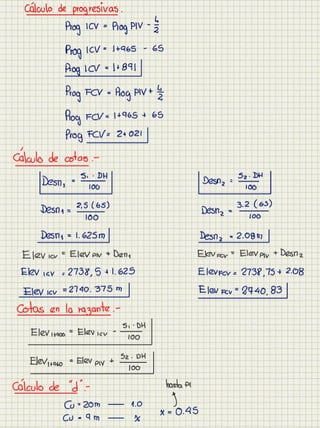 Cálculo de progresivas.
Prog ICV = Prog PIV - L/2
Prog ICV = 1+965 - 65
Prog ICV = 1+891
Prog FCV = Prog PIV + L/2
Prog FCV = 1+965 + 65
Prog FCV = 2+021
Cálculo de cotas.-
Desn₁ = S₁ · DH / 100
Desn₂ = S₂ · DH / 100
Desn₁ = 2,5 (65) / 100
Desn₂ = 3.2 (65) / 100
Desn₁ = 1.625m
Desn₂ = 2.08m
Elev ICV = Elev PIV + Den₁
Elev FCV = Elev PIV + Desn₂
Elev ICV = 2738,5 + 1.625
Elev FCV = 2738,75 + 2.08
Elev ICV = 2740.375 m
Elev FCV = 2940,83
Cotas en la razante.-
Elev 1+900 = Elev ICV - S₁ · DH / 100
Elev 1+960 = Elev PIV + S₂ · DH / 100
Cálculo de "d".-
hasta PI
Cu = 20m — 1.0
Cu = 9m — x
x = 0.45